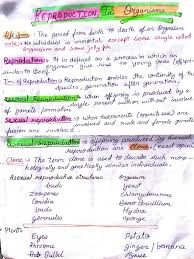 REPRODUCTION In Organisms
Life Span - The period from birth to death of an organism
No individual is immortal except some single celled
organism and some jelly fish
Reproduction - It is defined as a process in which an
give rise to young ones (offsprings)
similar to itself.
Im. of Reproduction - Reproduction enables the continuity of the
species, generation after generation.
Asexual Reproduction - when offspring is produced by a
single parent with or without involvement
of gamete formation.
Sexual reproduction - when two parents (opposite sex)
are involved and male and female gamete
Asexual reproduction offspring produced
reproduction are clone
Clone - The term clone is used to describe such morpho-
logically and genetically similar individuals.
Asexual reproductive structures
Organism
buds
Yeast
Zoospores
Chlamydomonas
Conidia
Penicillium
buds
Hydra
gemmules
Sponge
Plants
Eyes
Potato
Rhizome
Ginger / banana
Bulbil